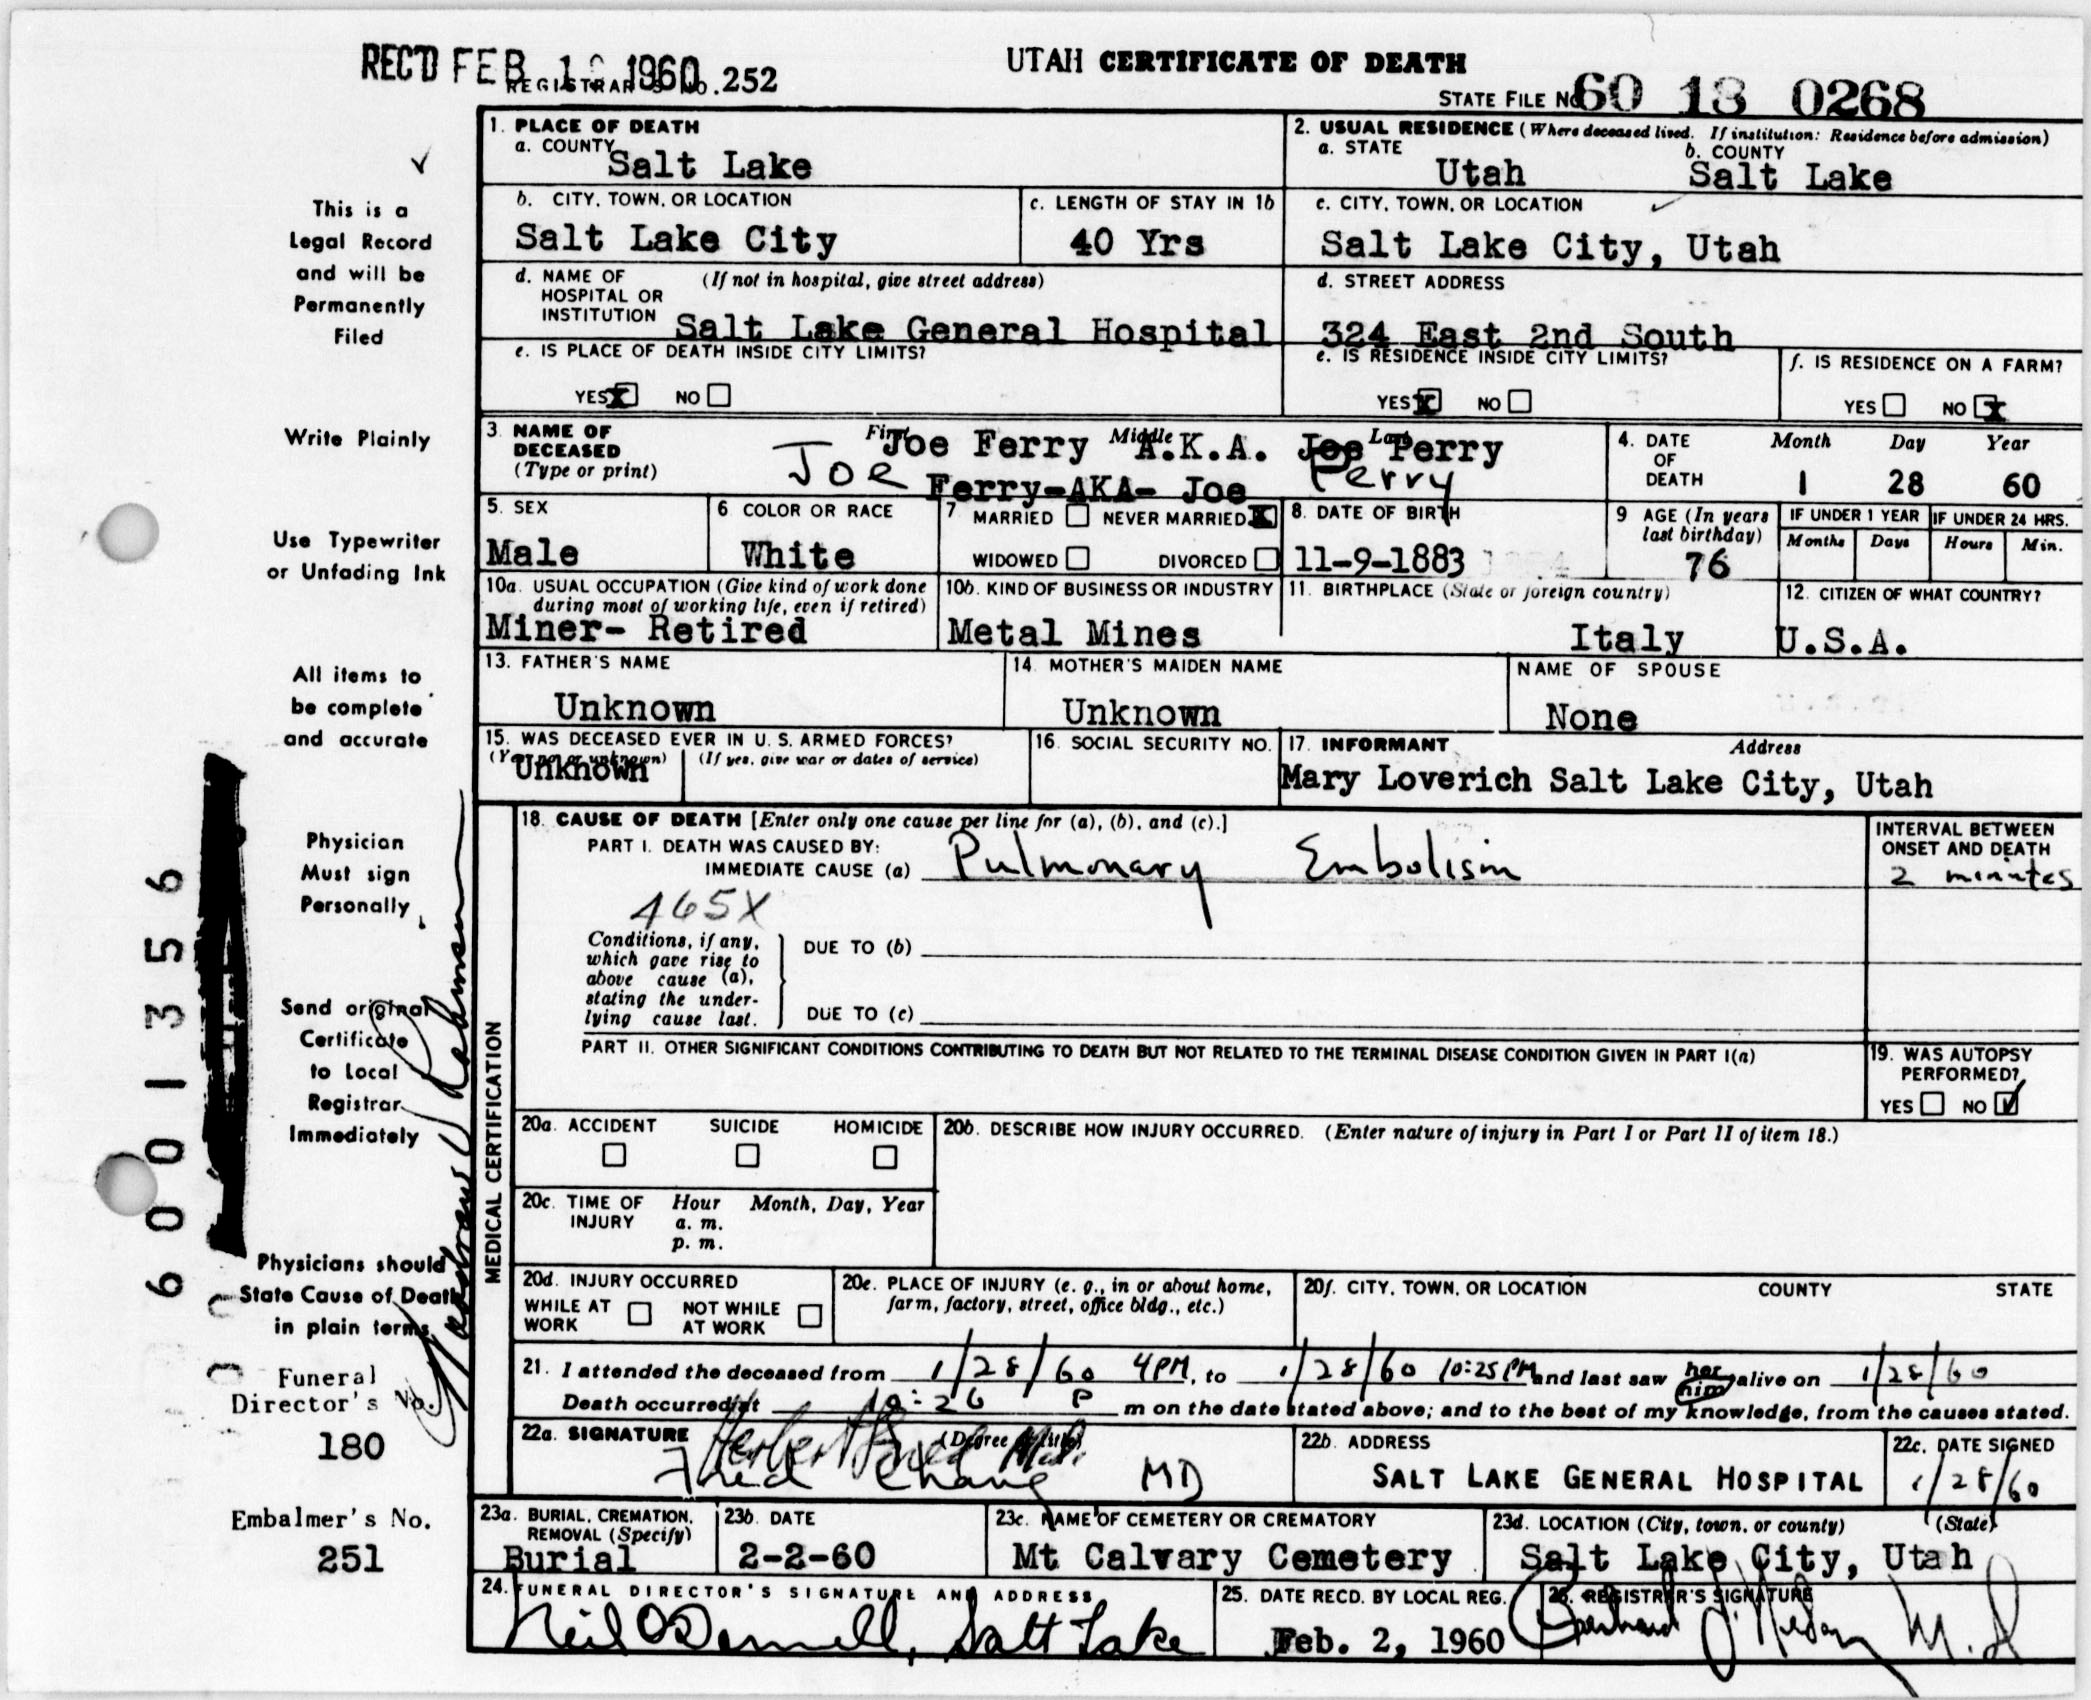 REC'D FEB 1 1960
REGISTRAR'S NO. 252
UTAH CERTIFICATE OF DEATH
STATE FILE NO 60 18 0268
1. PLACE OF DEATH
a. COUNTY
Salt Lake
2. USUAL RESIDENCE (Where deceased lived. If institution: Residence before admission)
a. STATE b. COUNTY
Utah Salt Lake
b. CITY, TOWN, OR LOCATION
Salt Lake City
c. LENGTH OF STAY IN 1b
40 Yrs
c. CITY, TOWN, OR LOCATION
Salt Lake City, Utah
d. NAME OF HOSPITAL OR INSTITUTION (If not in hospital, give street address)
Salt Lake General Hospital
d. STREET ADDRESS
324 East 2nd South
e. IS PLACE OF DEATH INSIDE CITY LIMITS?
YES X NO
e. IS RESIDENCE INSIDE CITY LIMITS?
YES X NO
f. IS RESIDENCE ON A FARM?
YES NO X
3. NAME OF DECEASED (Type or print)
First Middle Last
Joe Ferry A.K.A. Joe Perry
Joe Ferry-AKA- Joe Perry
4. DATE OF DEATH
Month Day Year
1 28 60
5. SEX
Male
6 COLOR OR RACE
White
7 MARRIED NEVER MARRIED X
WIDOWED DIVORCED
8. DATE OF BIRTH
11-9-1883
9 AGE (In years last birthday)
76
IF UNDER 1 YEAR
Months Days
IF UNDER 24 HRS.
Hours Min.
10a. USUAL OCCUPATION (Give kind of work done during most of working life, even if retired)
Miner- Retired
10b. KIND OF BUSINESS OR INDUSTRY
Metal Mines
11. BIRTHPLACE (State or foreign country)
Italy
12. CITIZEN OF WHAT COUNTRY?
U.S.A.
13. FATHER'S NAME
Unknown
14. MOTHER'S MAIDEN NAME
Unknown
NAME OF SPOUSE
None
15. WAS DECEASED EVER IN U. S. ARMED FORCES?
(Yes, no, or unknown) (If yes, give war or dates of service)
Unknown
16. SOCIAL SECURITY NO.
17. INFORMANT Address
Mary Loverich Salt Lake City, Utah
MEDICAL CERTIFICATION
18. CAUSE OF DEATH [Enter only one cause per line for (a), (b), and (c).]
PART I. DEATH WAS CAUSED BY:
IMMEDIATE CAUSE (a) Pulmonary Embolism
465X
INTERVAL BETWEEN ONSET AND DEATH
2 minutes
Conditions, if any, which gave rise to above cause (a), stating the underlying cause last.
DUE TO (b)
DUE TO (c)
PART II. OTHER SIGNIFICANT CONDITIONS CONTRIBUTING TO DEATH BUT NOT RELATED TO THE TERMINAL DISEASE CONDITION GIVEN IN PART I(a)
19. WAS AUTOPSY PERFORMED?
YES NO ✓
20a. ACCIDENT SUICIDE HOMICIDE
20b. DESCRIBE HOW INJURY OCCURRED. (Enter nature of injury in Part I or Part II of item 18.)
20c. TIME OF INJURY Hour Month, Day, Year
a. m.
p. m.
20d. INJURY OCCURRED
WHILE AT WORK NOT WHILE AT WORK
20e. PLACE OF INJURY (e. g., in or about home, farm, factory, street, office bldg., etc.)
20f. CITY, TOWN, OR LOCATION COUNTY STATE
21. I attended the deceased from 1/28/60 4PM, to 1/28/60 10:25 PM and last saw her him alive on 1/28/60
Death occurred at 10:26 P m on the date stated above; and to the best of my knowledge, from the causes stated.
22a. SIGNATURE (Degree or title)
Fred Chang MD
22b. ADDRESS
SALT LAKE GENERAL HOSPITAL
22c. DATE SIGNED
1/28/60
23a. BURIAL, CREMATION, REMOVAL (Specify)
Burial
23b. DATE
2-2-60
23c. NAME OF CEMETERY OR CREMATORY
Mt Calvary Cemetery
23d. LOCATION (City, town, or county) (State)
Salt Lake City, Utah
24. FUNERAL DIRECTOR'S SIGNATURE AND ADDRESS
Neil O'Donnell, Salt Lake
25. DATE RECD. BY LOCAL REG.
Feb. 2, 1960
26. REGISTRAR'S SIGNATURE
M.D
This is a
Legal Record
and will be
Permanently
Filed
Write Plainly
Use Typewriter
or Unfading Ink
All items to
be complete
and accurate
Physician
Must sign
Personally
Send original
Certificate
to Local
Registrar
Immediately
Physicians should
State Cause of Death
in plain terms
Funeral
Director's No.
180
Embalmer's No.
251
6001356